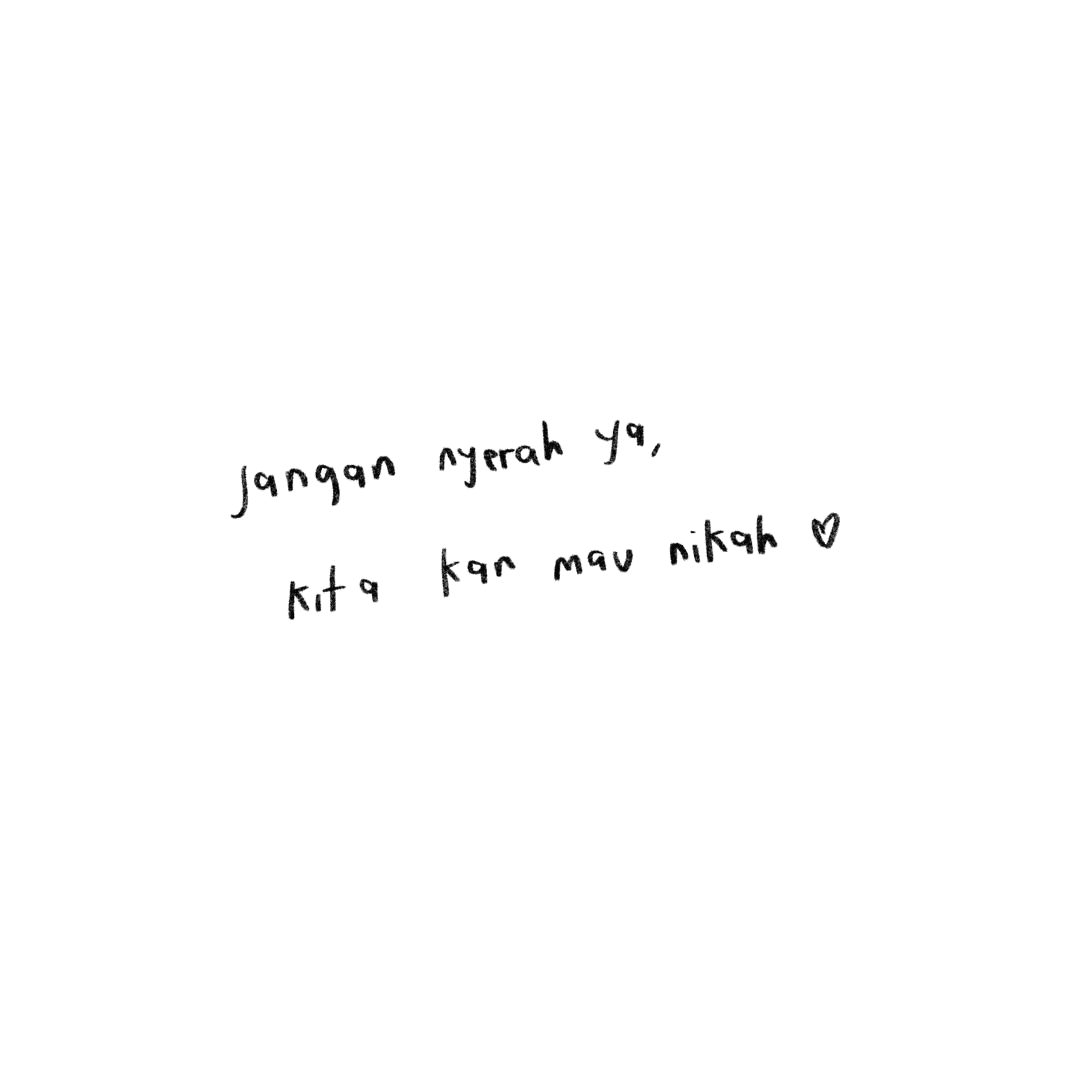 jangan nyerah ya,
kita kan mau nikah ♡